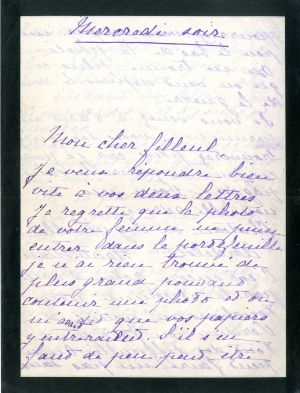 Mercredi soir
Mon cher filleul
Je veux répondre bien
vite à vos deux lettres
Je regrette que la photo
de votre femme ne puisse
entrer dans le portefeuille
je n'ai rien trouvé de
plus grand pouvant
contenir une photo et on
m'avait dit que vos papiers
y entreraient. S'il s'en
faut de peu peut être